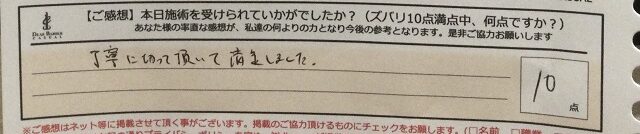 【ご感想】本日施術を受けられていかがでしたか？（ズバリ10点満点中、何点ですか？）
あなた様の率直な感想が、私達の何よりの力となり今後の参考となります。是非ご協力お願いします
丁寧に切って頂いて満足しました。
10
点
※ご感想はネット等に掲載させて頂く事がございます。掲載のご協力頂けるものにチェックをお願いします。（□名前